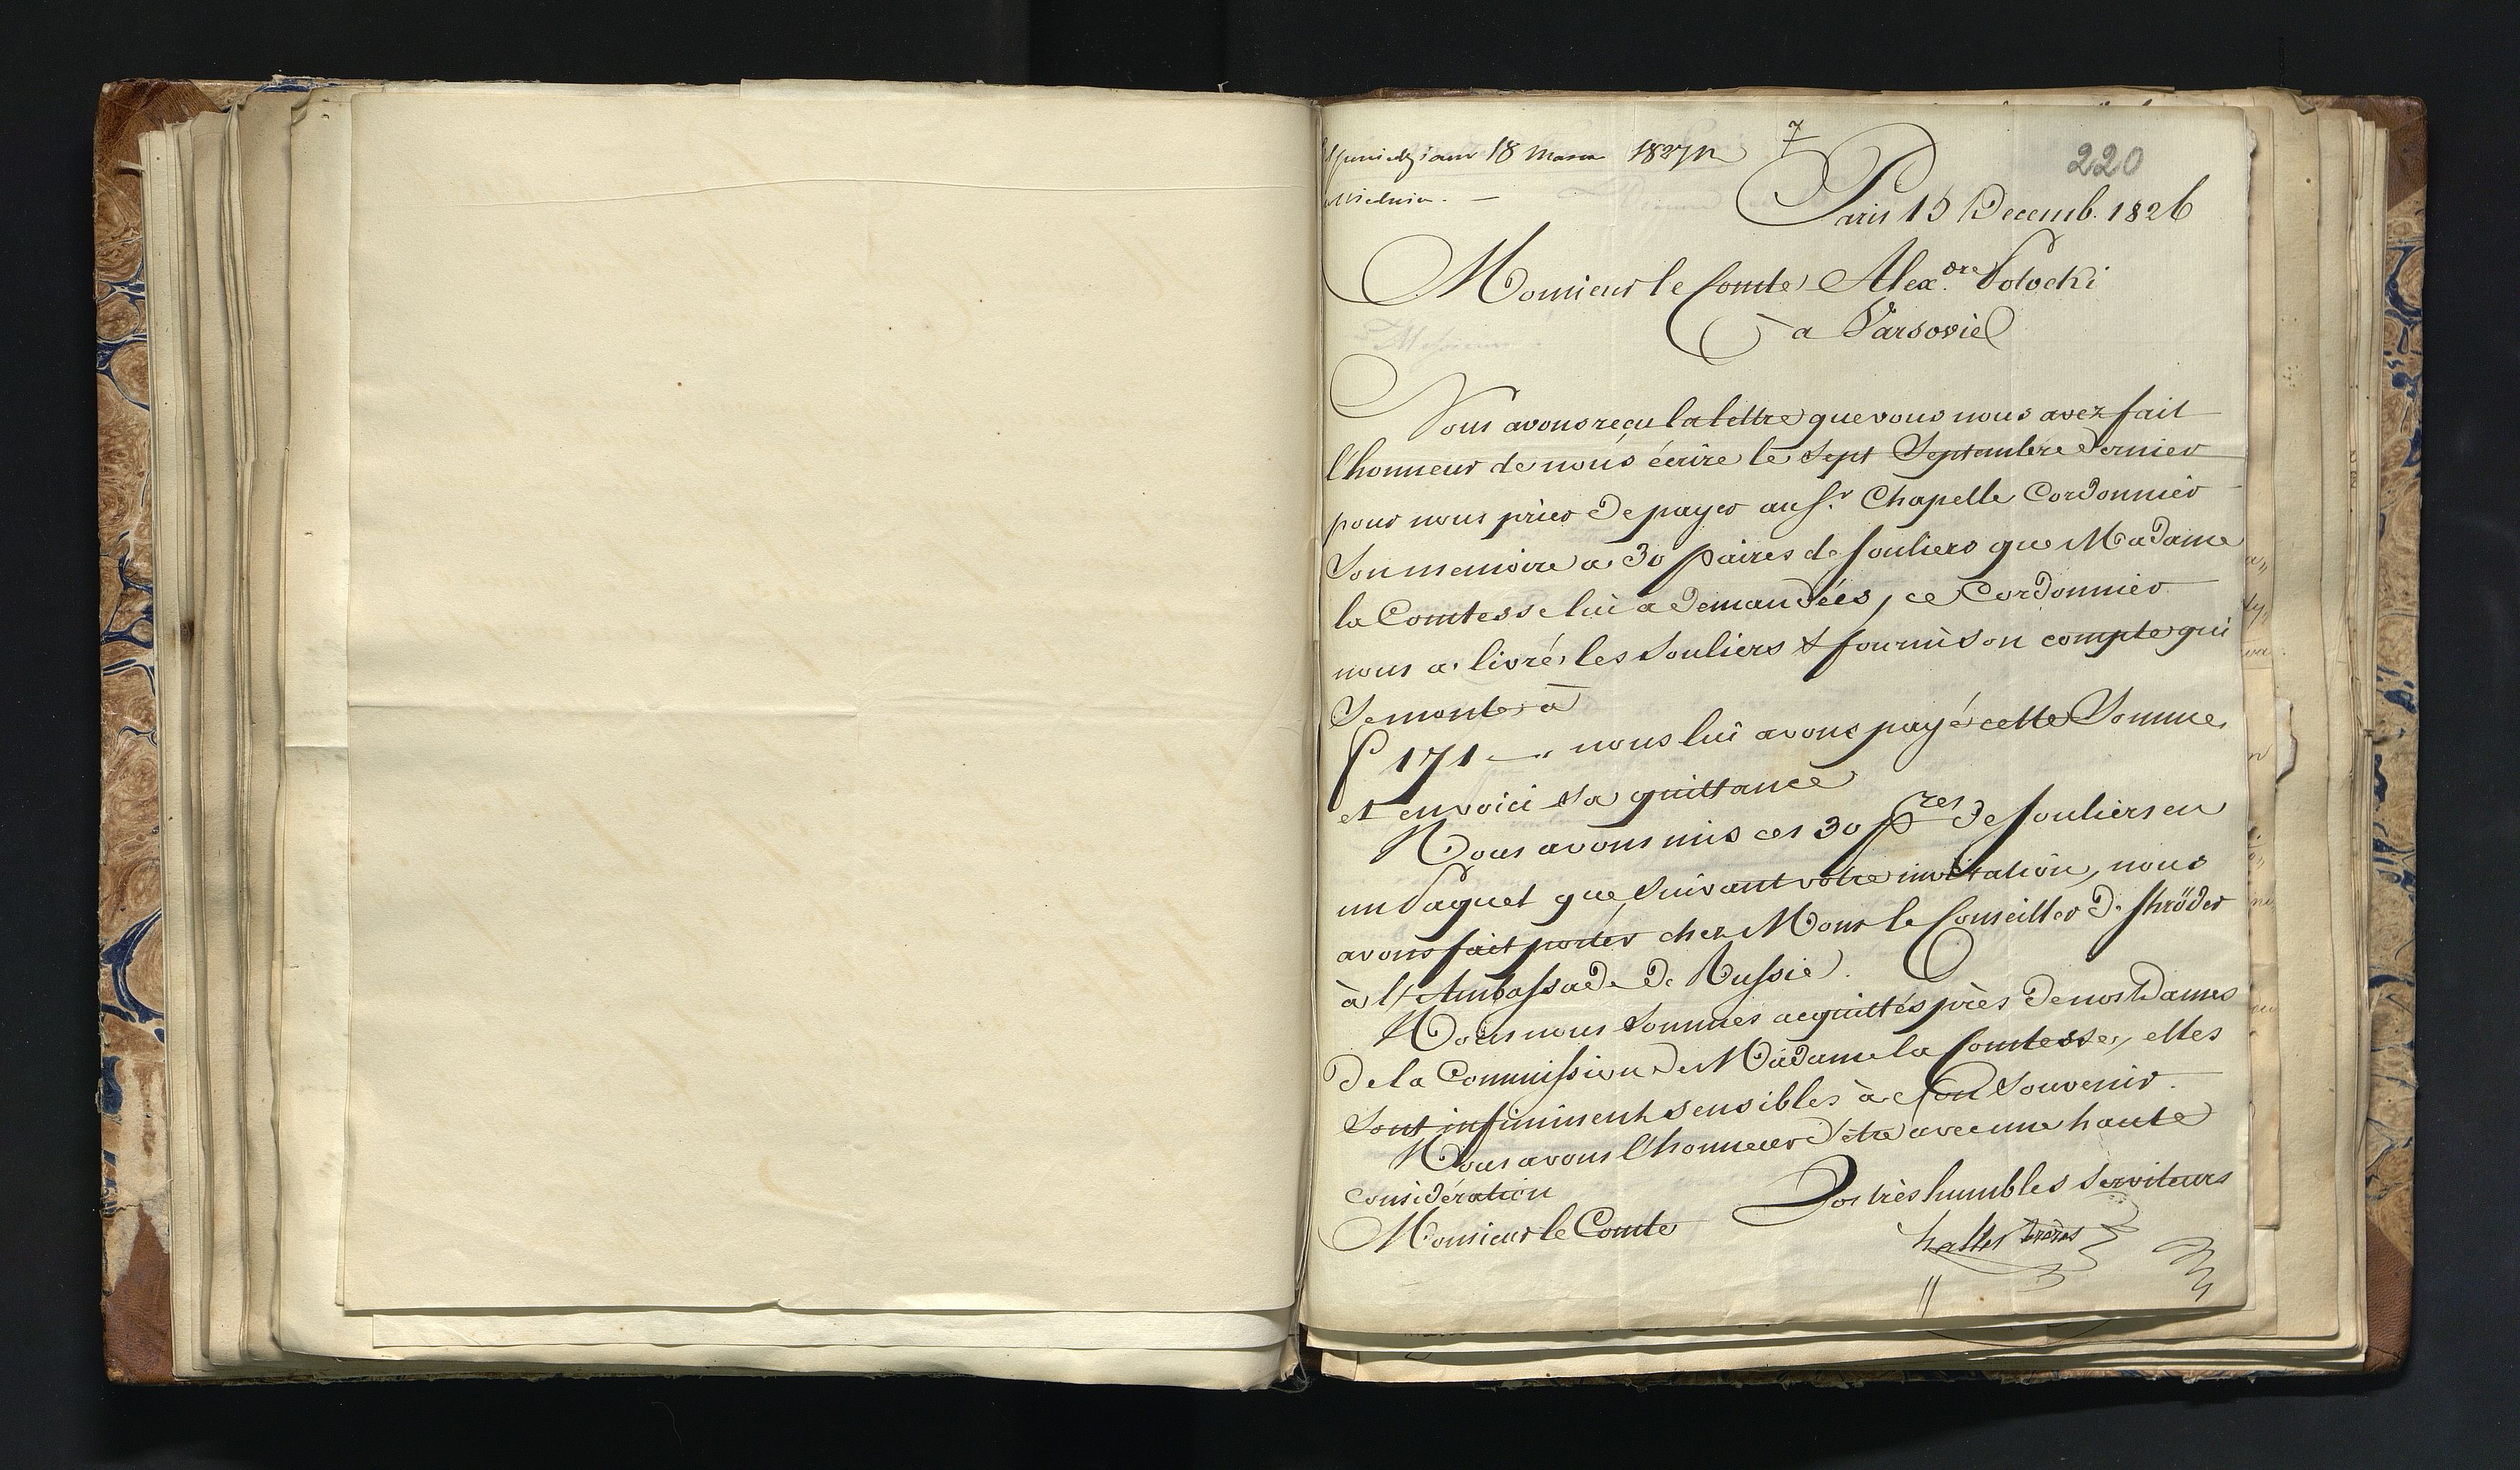 18 Marca 1827 r
7
220
Paris 15 Decemb. 1826
Monsieur le Comte Alex.dre Potocki
à Varsovie
Nous avons reçu la lettre que vous nous avez fait
l'honneur de nous écrire le sept Septembre dernier
pour nous prier de payer au Sr. Chapelle Cordonnier
Son memoire a 30 paires de souliers que Madame
la Comtesse lui a demandées, ce Cordonnier
nous a livré les souliers & fourni son compte qui
Se monte à
f 171 — " nous lui avons payé cette Somme,
et en voici sa quittance
Nous avons mis ces 30 pres de souliers en
un Paquet que suivant votre invitation, nous
avons fait porter chez Monr le Conseiller de Shröder
à l'Ambassade de Russie.
Nous nous sommes acquittés près de nos Dames
de la Commission de Madame la Comtesse, elles
Sont infiniment sensibles à son Souvenir.
Nous avons l'honneur d'être avec une haute
considération
Monsieur le Comte
Vos très humbles serviteurs
frères